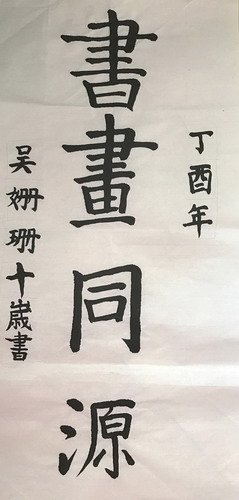 丁酉年
書畫同源
吴姗珊十歲書